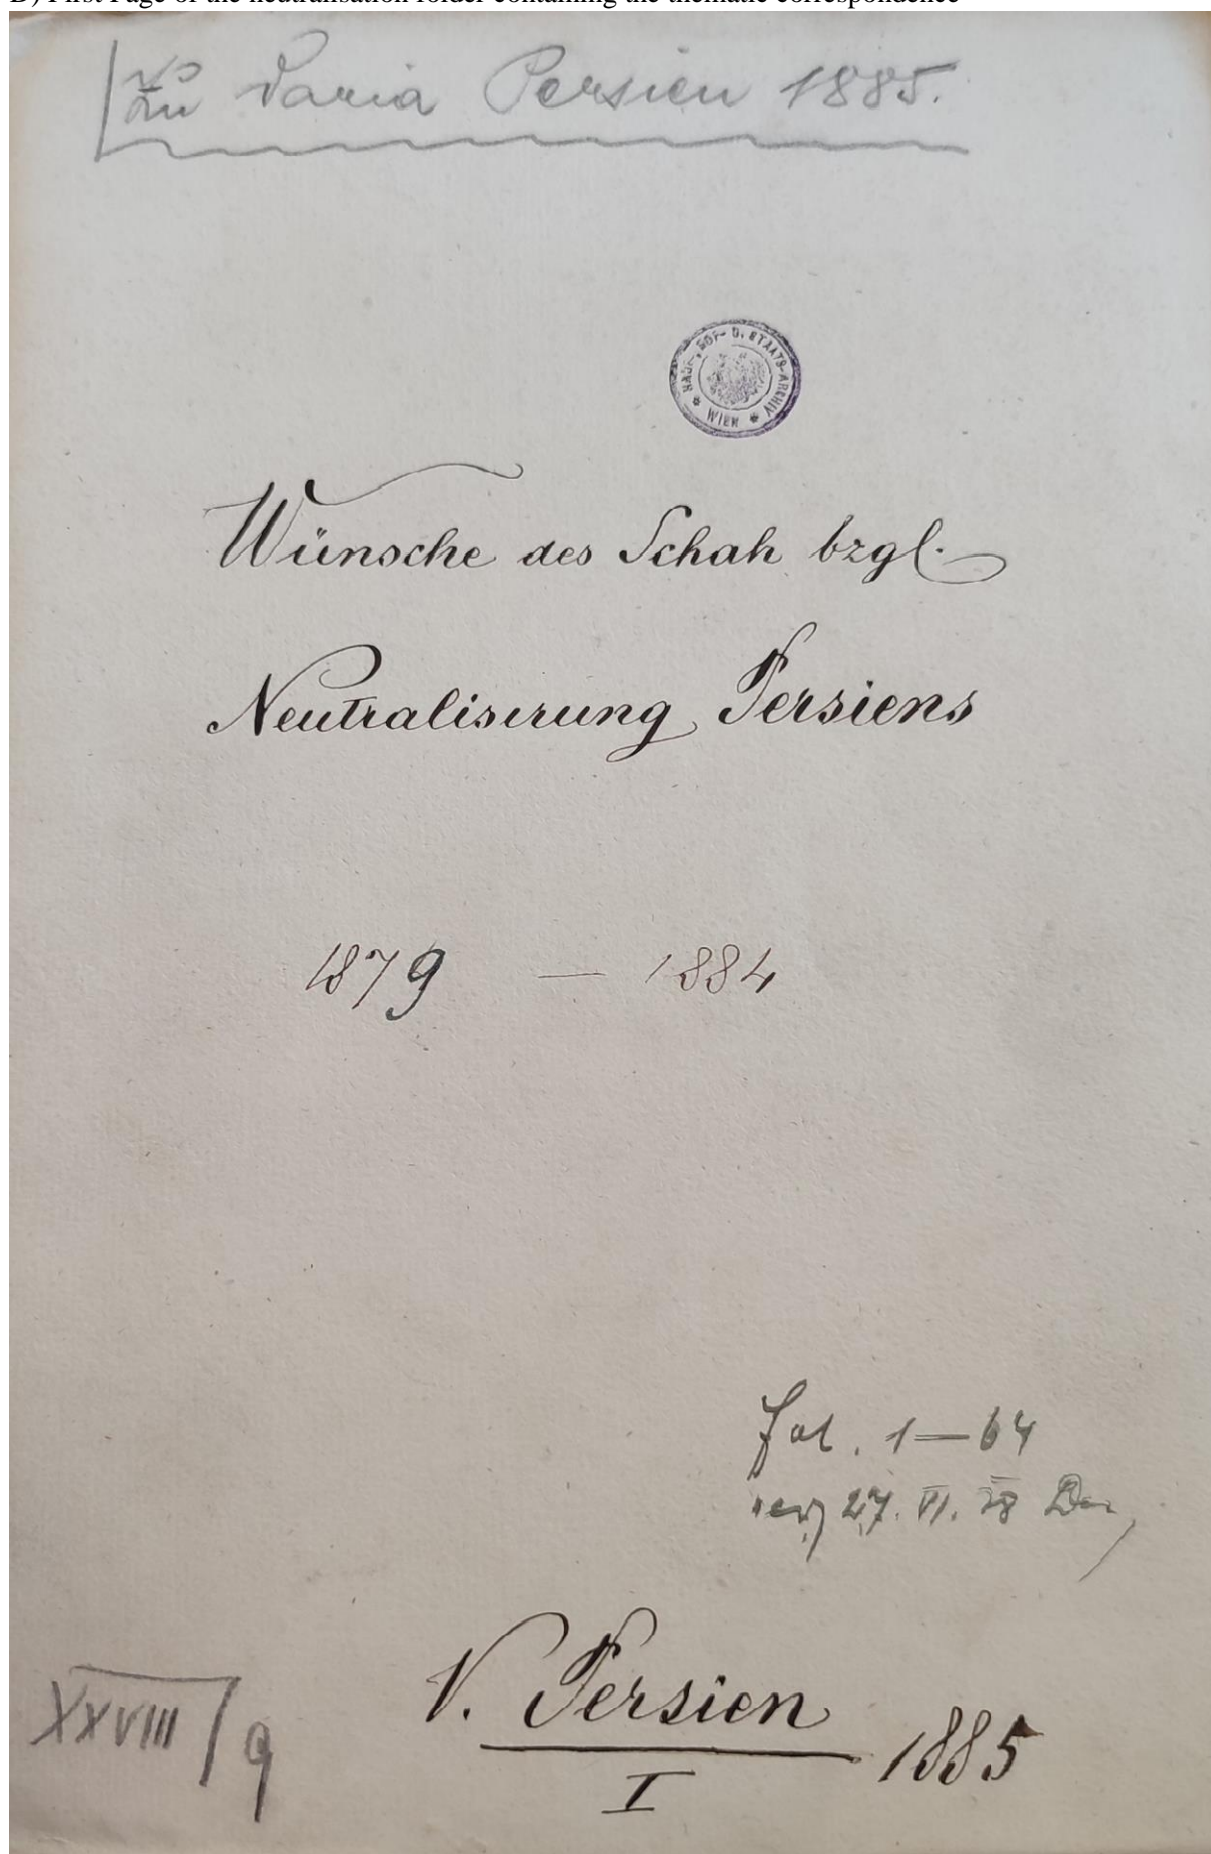 D) First Page of the neutralisation folder containing the thematic correspondence
zu Varia Persien 1885.
HAUS-, HOF- U. STAATS-ARCHIV
* WIEN *
Wünsche des Schah bzgl.
Neutralisirung Persiens
1879 — 1884
fol. 1—64
27. VI. 28
V. Persien 1885
I
XXVIII/9